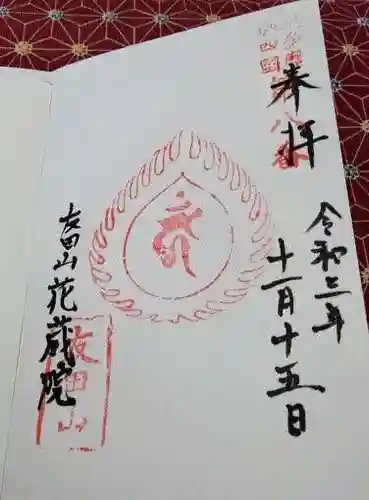 奉拝
令和二年
十一月十五日
友田山花蔵院
友田山